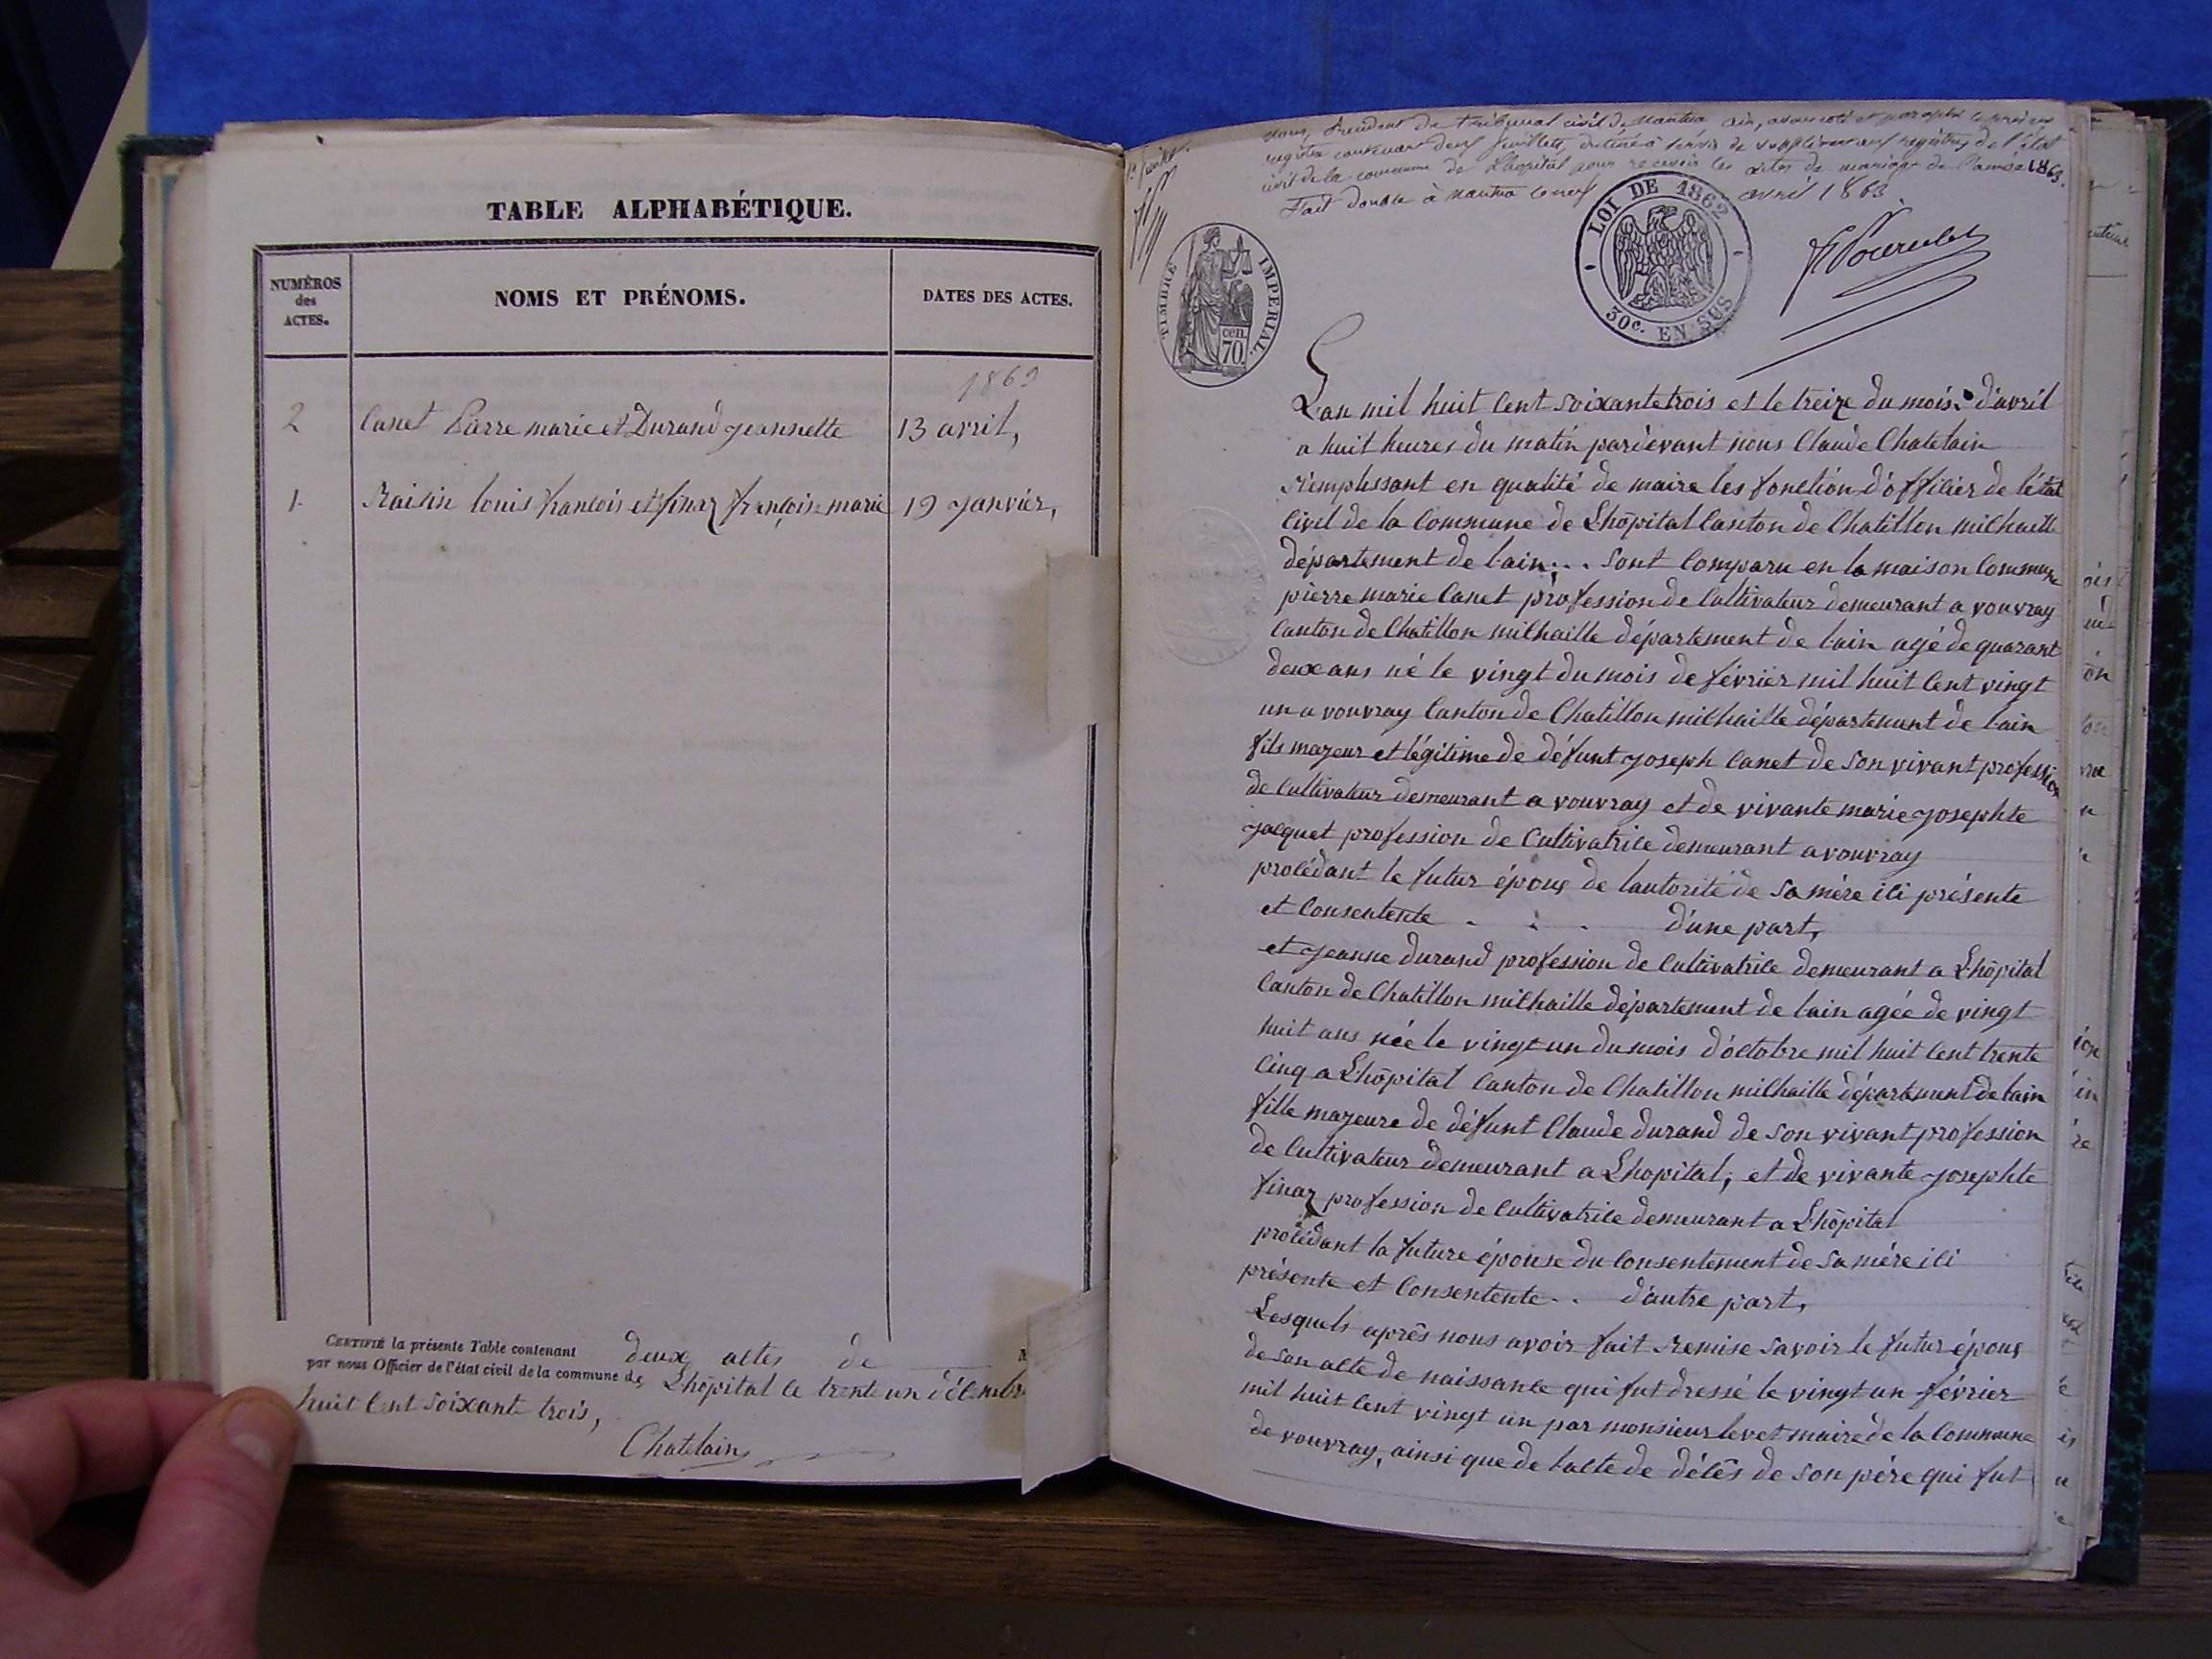 TABLE ALPHABÉTIQUE.
NUMÉROS
des
ACTES.
NOMS ET PRÉNOMS.
DATES DES ACTES.
1863
2 Canet Pierre marie et Durand jeannette 13 avril,
1. Raisin louis francois et finaz françoise marie 19 janvier,
CERTIFIÉ la présente Table contenant deux actes de
par nous Officier de l'état civil de la commune de Lhôpital le trente un décembre
huit cent soixante trois,
Chatelain
1er feuillet.
nous, Président du tribunal civil de Nantua Ain, avons coté et paraphé le présent
registre contenant deux feuillets, destiné à servir de supplément aux registres de l'état
civil de la commune de Lhopital pour recevoir les actes de mariage de l'année 1863.
Fait double à Nantua le neuf avril 1863
TIMBRE IMPERIAL.
cen.
70.
LOI DE 1862
30c. EN SUS
L'an mil huit cent soixante trois et le treize du mois d'avril
a huit heures du matin pardevant nous Claude Chatelain
remplissant en qualité de maire les fonction d'officier de l'état
civil de la commune de Lhôpital canton de Chatillon michaille
département de l'ain... sont comparu en la maison commune
pierre marie Canet profession de cultivateur demeurant a vouvray
canton de Chatillon michaille département de lain agé de quarant
deux ans né le vingt du mois de février mil huit cent vingt
un a vouvray canton de Chatillon michaille département de lain
fils majeur et légitime de défunt joseph Canet de son vivant profession
de cultivateur demeurant a vouvray et de vivante marie josephte
jacquet profession de cultivatrice demeurant a vouvray
procédant le futur époux de lautorité de sa mère ici présente
et consentente . . . d'une part,
et jeanne durand profession de cultivatrice demeurant a Lhôpital
canton de Chatillon michaille département de lain agée de vingt
huit ans née le vingt un du mois d'octobre mil huit cent trente
cinq a Lhôpital canton de Chatillon michaille département de lain
fille majeure de défunt Claude durand de son vivant profession
de cultivateur demeurant a Lhopital; et de vivante josephte
finaz profession de cultivatrice demeurant a Lhôpital
procédant la future épouse du consentement de sa mère ici
présente et consentente . . d'autre part,
Lesquels après nous avoir fait remise savoir le futur époux
de son acte de naissance qui fut dressé le vingt un février
mil huit cent vingt un par monsieur levet maire de la commune
de vouvray, ainsi que de l'acte de décês de son père qui fut